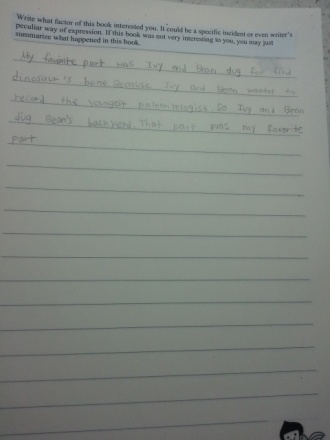 Write what factor of this book interested you. It could be a specific incident or even writer's
peculiar way of expression. If this book was not very interesting to you, you may just
summarize what happened in this book.
My favorite part was Ivy and Bean dug for find
dinosaur's bone. Because Ivy and Bean wanted to
record the youngest So Ivy and Bean
dug Bean's backyard. That part was my favorite
part